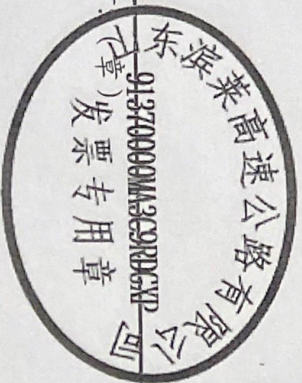 东滨莱高速公路有限公司
91370000MA3C9RDGXP
(章)
发票专用章